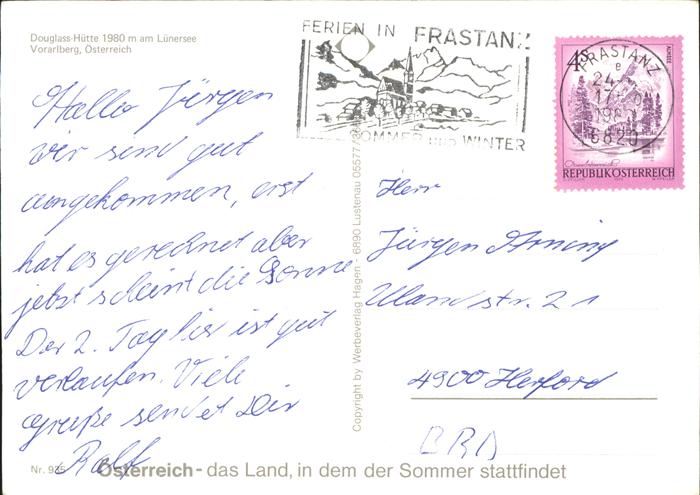 Douglass-Hütte 1980 m am Lünersee
Vorarlberg, Österreich
Hallo Jürgen
wir sind gut
angekommen, erst
hat es geregnet aber
jetzt scheint die Sonne
Der 2. Tag hier ist gut
verlaufen. Viele
grüße sendet Dir
Ralf
Nr. 935
FERIEN IN FRASTANZ
SOMMER UND WINTER
FRASTANZ
e
24.
17
6820
REPUBLIK ÖSTERREICH
Copyright by Werbeverlag Hagen - 6890 Lustenau 05577/
Herr
Jürgen
Ulandstr. 21
4900 Herford
BRD
Österreich - das Land, in dem der Sommer stattfindet